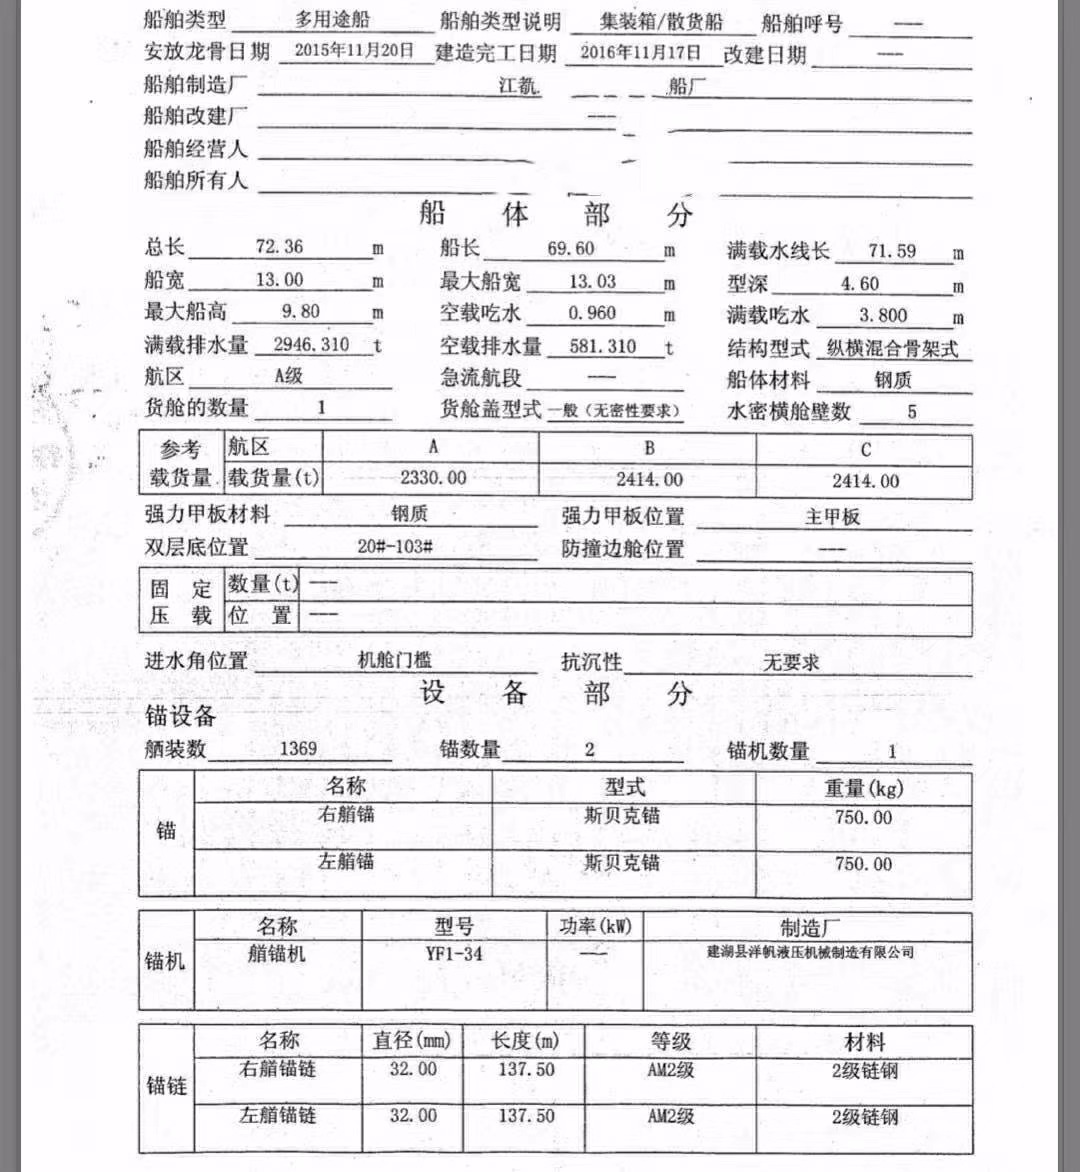 船舶类型 多用途船 船舶类型说明 集装箱/散货船 船舶呼号 ---
安放龙骨日期 2015年11月20日 建造完工日期 2016年11月17日 改建日期 ---
船舶制造厂 江 船厂
船舶改建厂 ---
船舶经营人
船舶所有人
船 体 部 分
总长 72.36 m 船长 69.60 m 满载水线长 71.59 m
船宽 13.00 m 最大船宽 13.03 m 型深 4.60 m
最大船高 9.80 m 空载吃水 0.960 m 满载吃水 3.800 m
满载排水量 2946.310 t 空载排水量 581.310 t 结构型式 纵横混合骨架式
航区 A级 急流航段 --- 船体材料 钢质
货舱的数量 1 货舱盖型式 一般(无密性要求) 水密横舱壁数 5
参考 航区 A B C
载货量 载货量(t) 2330.00 2414.00 2414.00
强力甲板材料 钢质 强力甲板位置 主甲板
双层底位置 20#-103# 防撞边舱位置 ---
固 定 数量(t) ---
压 载 位 置 ---
进水角位置 机舱门槛 抗沉性 无要求
设 备 部 分
锚设备
舾装数 1369 锚数量 2 锚机数量 1
名称 型式 重量(kg)
锚 右艏锚 斯贝克锚 750.00
左艏锚 斯贝克锚 750.00
名称 型号 功率(kW) 制造厂
锚机 艏锚机 YF1-34 --- 建湖县洋帆液压机械制造有限公司
名称 直径(mm) 长度(m) 等级 材料
锚链 右艏锚链 32.00 137.50 AM2级 2级链钢
左艏锚链 32.00 137.50 AM2级 2级链钢